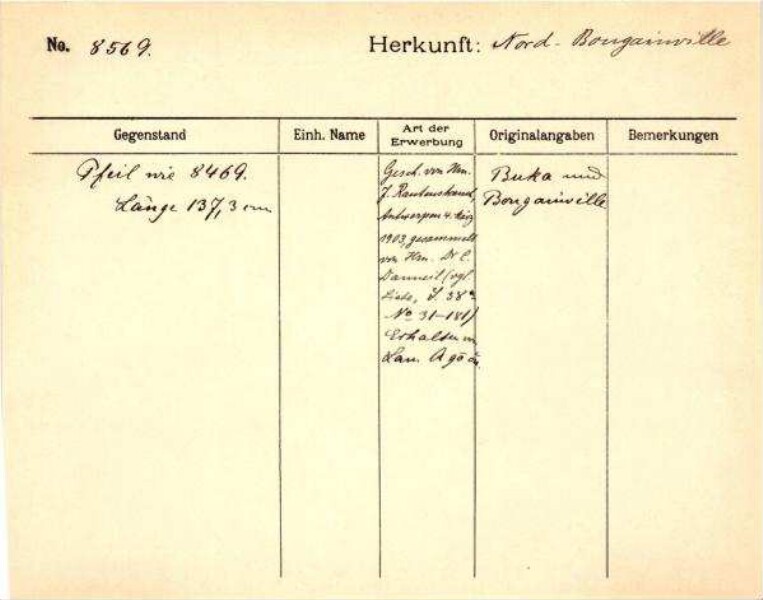 No. 8569.
Herkunft: Nord-Bougainville
Gegenstand
Einh. Name
Art der Erwerbung
Originalangaben
Bemerkungen
Pfeil wie 8469.
Länge 137,3 cm
Gesch. von Hrn.
J. Rautenstrauch,
Antwerpen 4. März
1903, gesammelt
von Hrn. Dr. C.
Danneil (vgl.
Liste, S. 38
No 31-181)
Erhalten in
Lau
Buka und
Bougainville